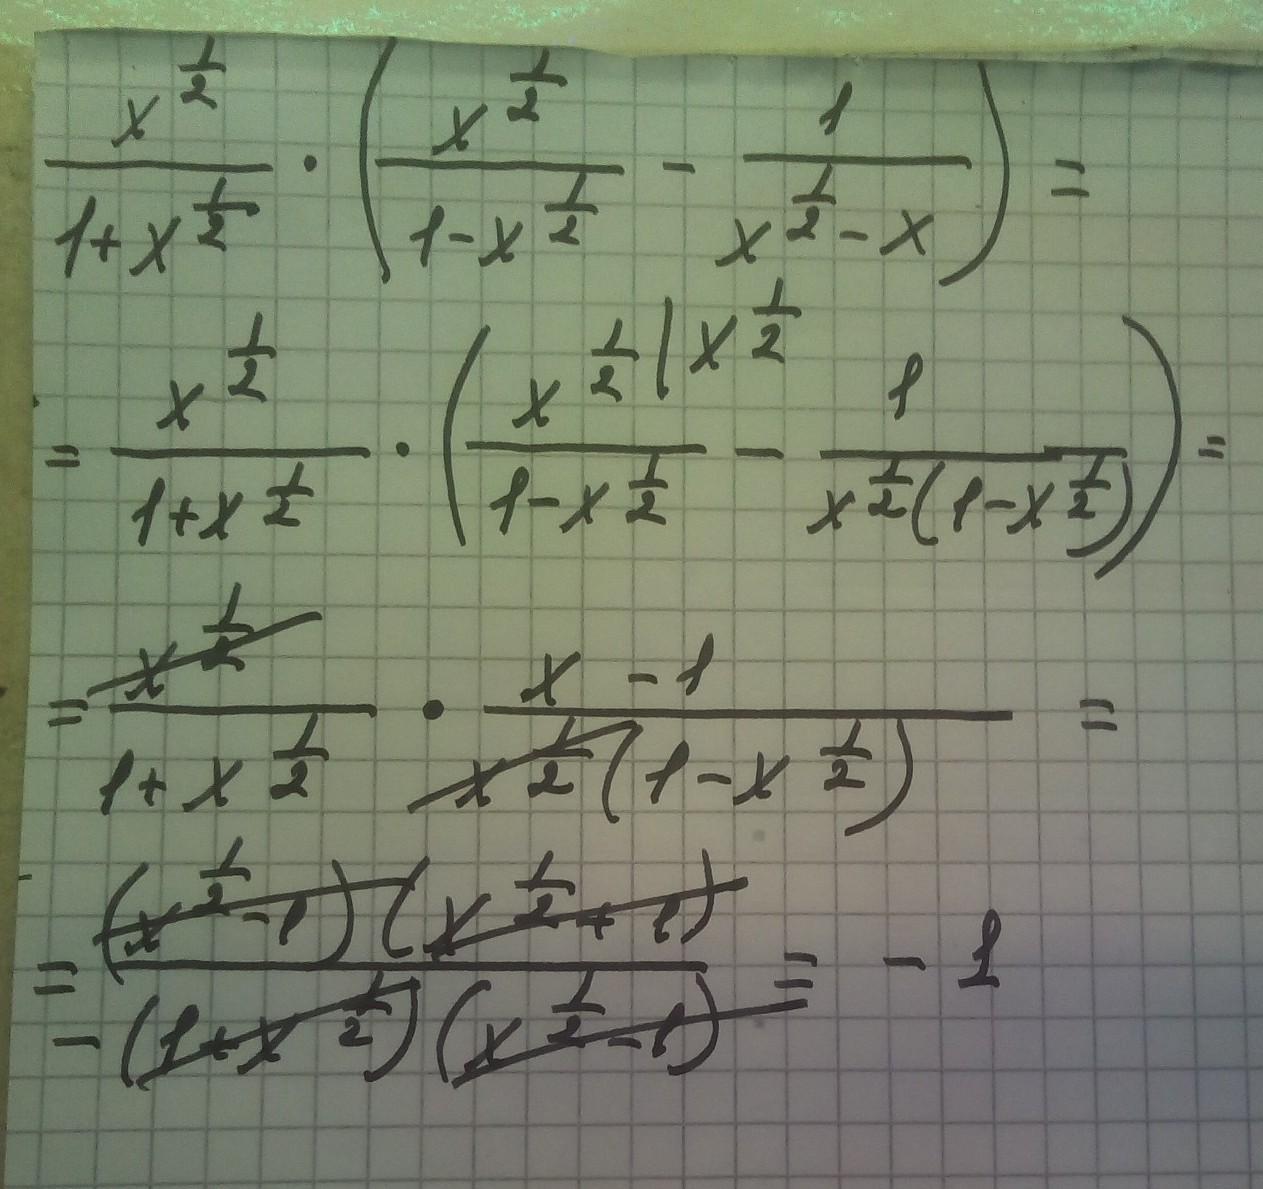 x^(1/2) / (1+x^(1/2)) · ( x^(1/2) / (1-x^(1/2)) - 1 / (x^(1/2)-x) ) =
= x^(1/2) / (1+x^(1/2)) · ( x^(1/2) | x^(1/2) / (1-x^(1/2)) - 1 / (x^(1/2)(1-x^(1/2))) ) =
= x^(1/2) / (1+x^(1/2)) · (x-1) / (x^(1/2)(1-x^(1/2))) =
= (x^(1/2)-1)(x^(1/2)+1) / -(1+x^(1/2))(x^(1/2)-1) = -1